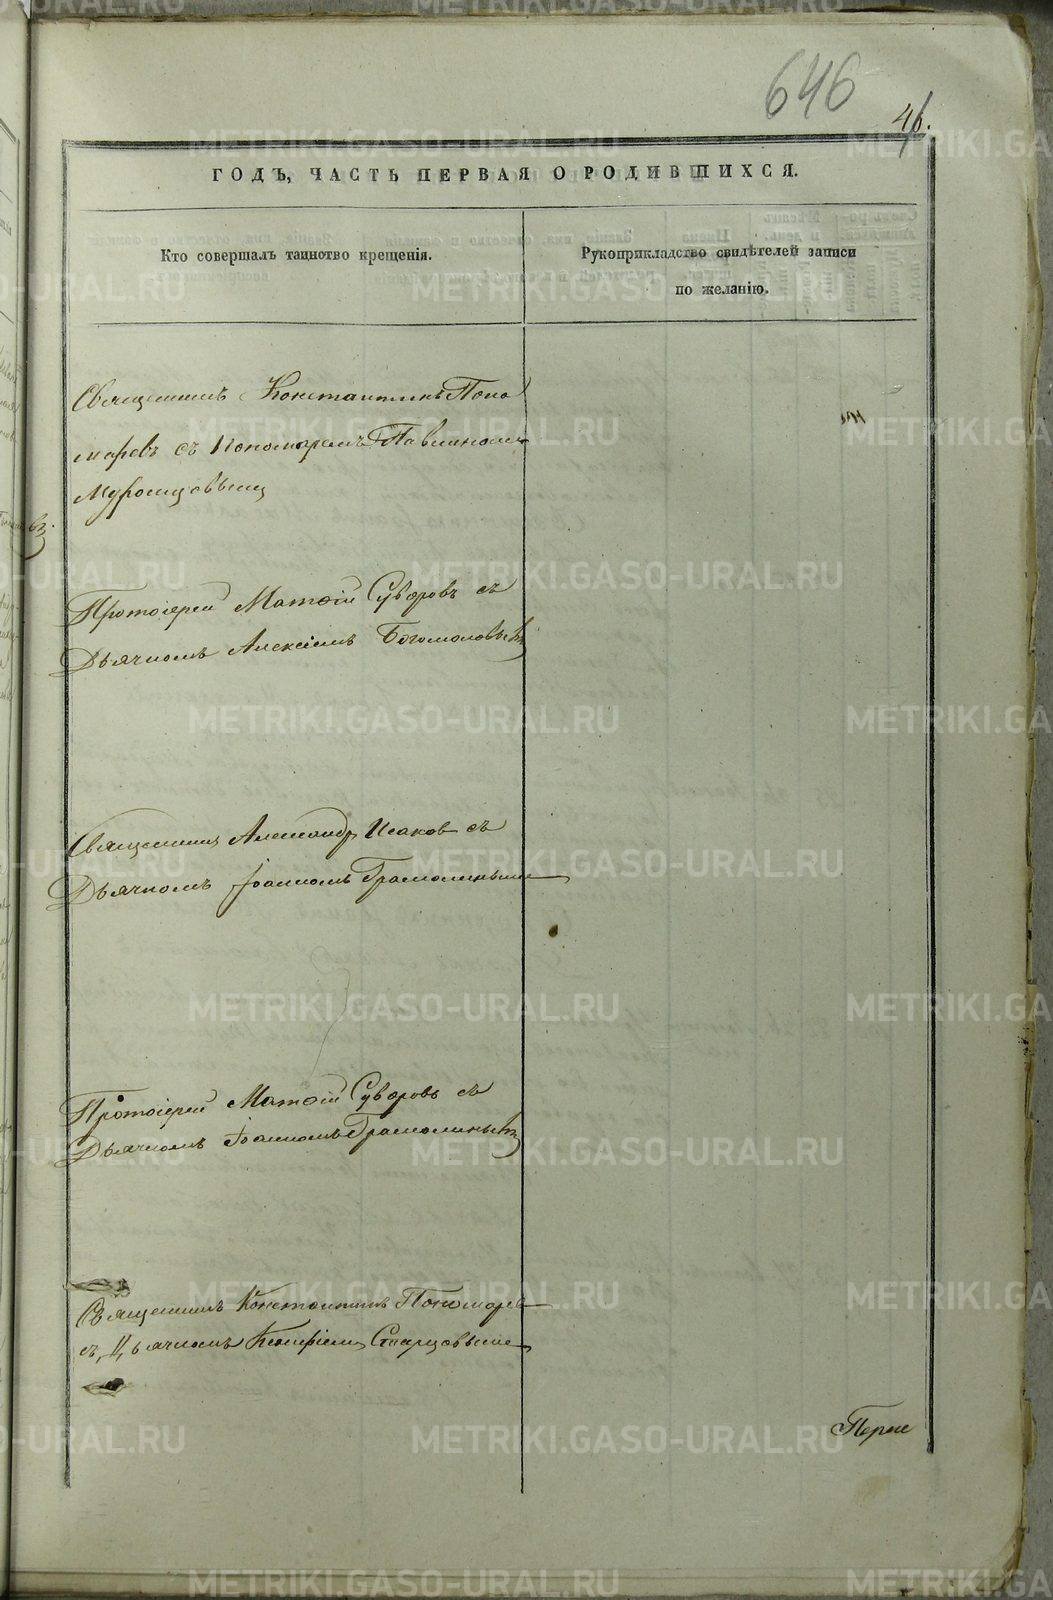 646
46.
ГОДЪ, ЧАСТЬ ПЕРВАЯ О РОДИВШИХСЯ.
Кто совершалъ таинство крещенія.
Рукоприкладство свидѣтелей записи
по желанію.
Священникъ Константинъ Поно
маревъ съ Пономаремъ Павлиномъ
Муромцовымъ
Протоіерей Матѳій Суворовъ съ
Дьячкомъ Алексіемъ Богомоловымъ
Священникъ Александръ Исаковъ съ
Дьячкомъ Іоанномъ Грамолинымъ
Протоіерей Матѳій Суворовъ съ
Дьячкомъ Іоанномъ Грамолинымъ
Священникъ Константинъ Пономаревъ
съ Дьячкомъ Старцовымъ
METRIKI.GASO-URAL.RU